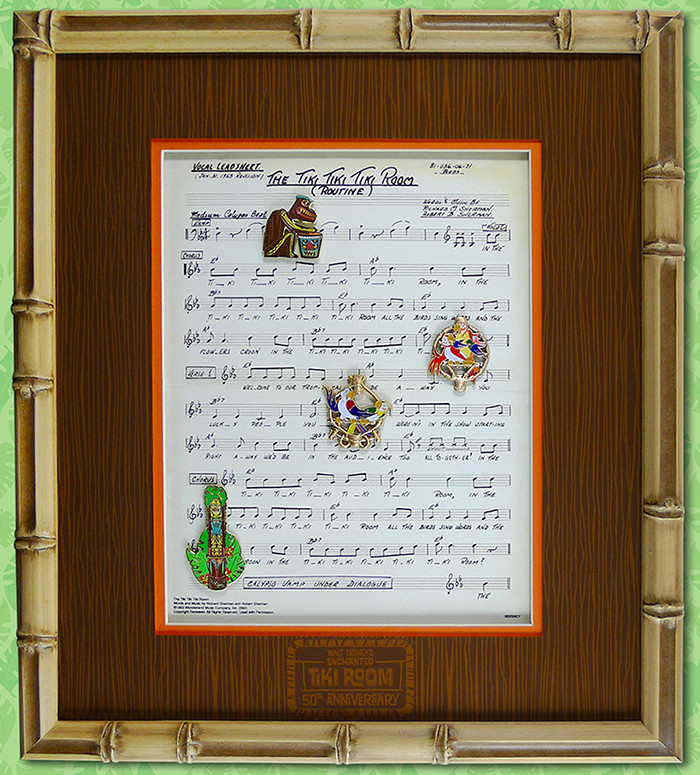 VOCAL LEADSHEET
(JAN. 31, 1963 REVISION)
THE TIKI TIKI TIKI ROOM
(ROUTINE)
31-036-06-71
BIRDS
WORDS & MUSIC BY
RICHARD M. SHERMAN
ROBERT B. SHERMAN
MEDIUM CALYPSO BEAT
VAMP
IN THE
CHORUS
Eb Ab
TI_KI TI_KI TI_KI TI_KI TI_KI ROOM, IN THE
Bb7 Eb
TI_KI TI_KI TI_KI TI_KI TI_KI ROOM ALL THE BIRDS SING WORDS AND THE
Ab Eb Bb7 Eb
FLOW_ERS CROON IN THE TI_KI TI_KI TI_KI TI_KI TI_KI
VERSE 1 Eb Ab
WEL_COME TO OUR TROP_ A_WAY YOU
Bb7 Eb
LUCK_Y PEO_PLE YOU WEREN'T IN THE SHOW STARTING
Ab Eb
RIGHT A_WAY WE'D BE IN THE AUD_I_ENCE TOO ALL TO-GETH-ER! IN THE
CHORUS Eb Ab
TI_KI TI_KI TI_KI TI_KI TI_KI ROOM, IN THE
Bb7 Eb
TI_KI TI_KI TI_KI TI_KI ROOM ALL THE BIRDS SING WORDS AND THE
Bb7 Eb
CROON IN THE TI_KI TI_KI TI_KI TI_KI TI_KI ROOM!
CALYPSO VAMP UNDER DIALOGUE
THE
The Tiki Tiki Tiki Room
Words and Music by Richard Sherman and Robert Sherman
©1963 Wonderland Music Company, Inc. (BMI)
Copyright Renewed. All Rights Reserved. Used with Permission.
©DISNEY
WALT DISNEY'S
ENCHANTED
TIKI ROOM
50TH ANNIVERSARY